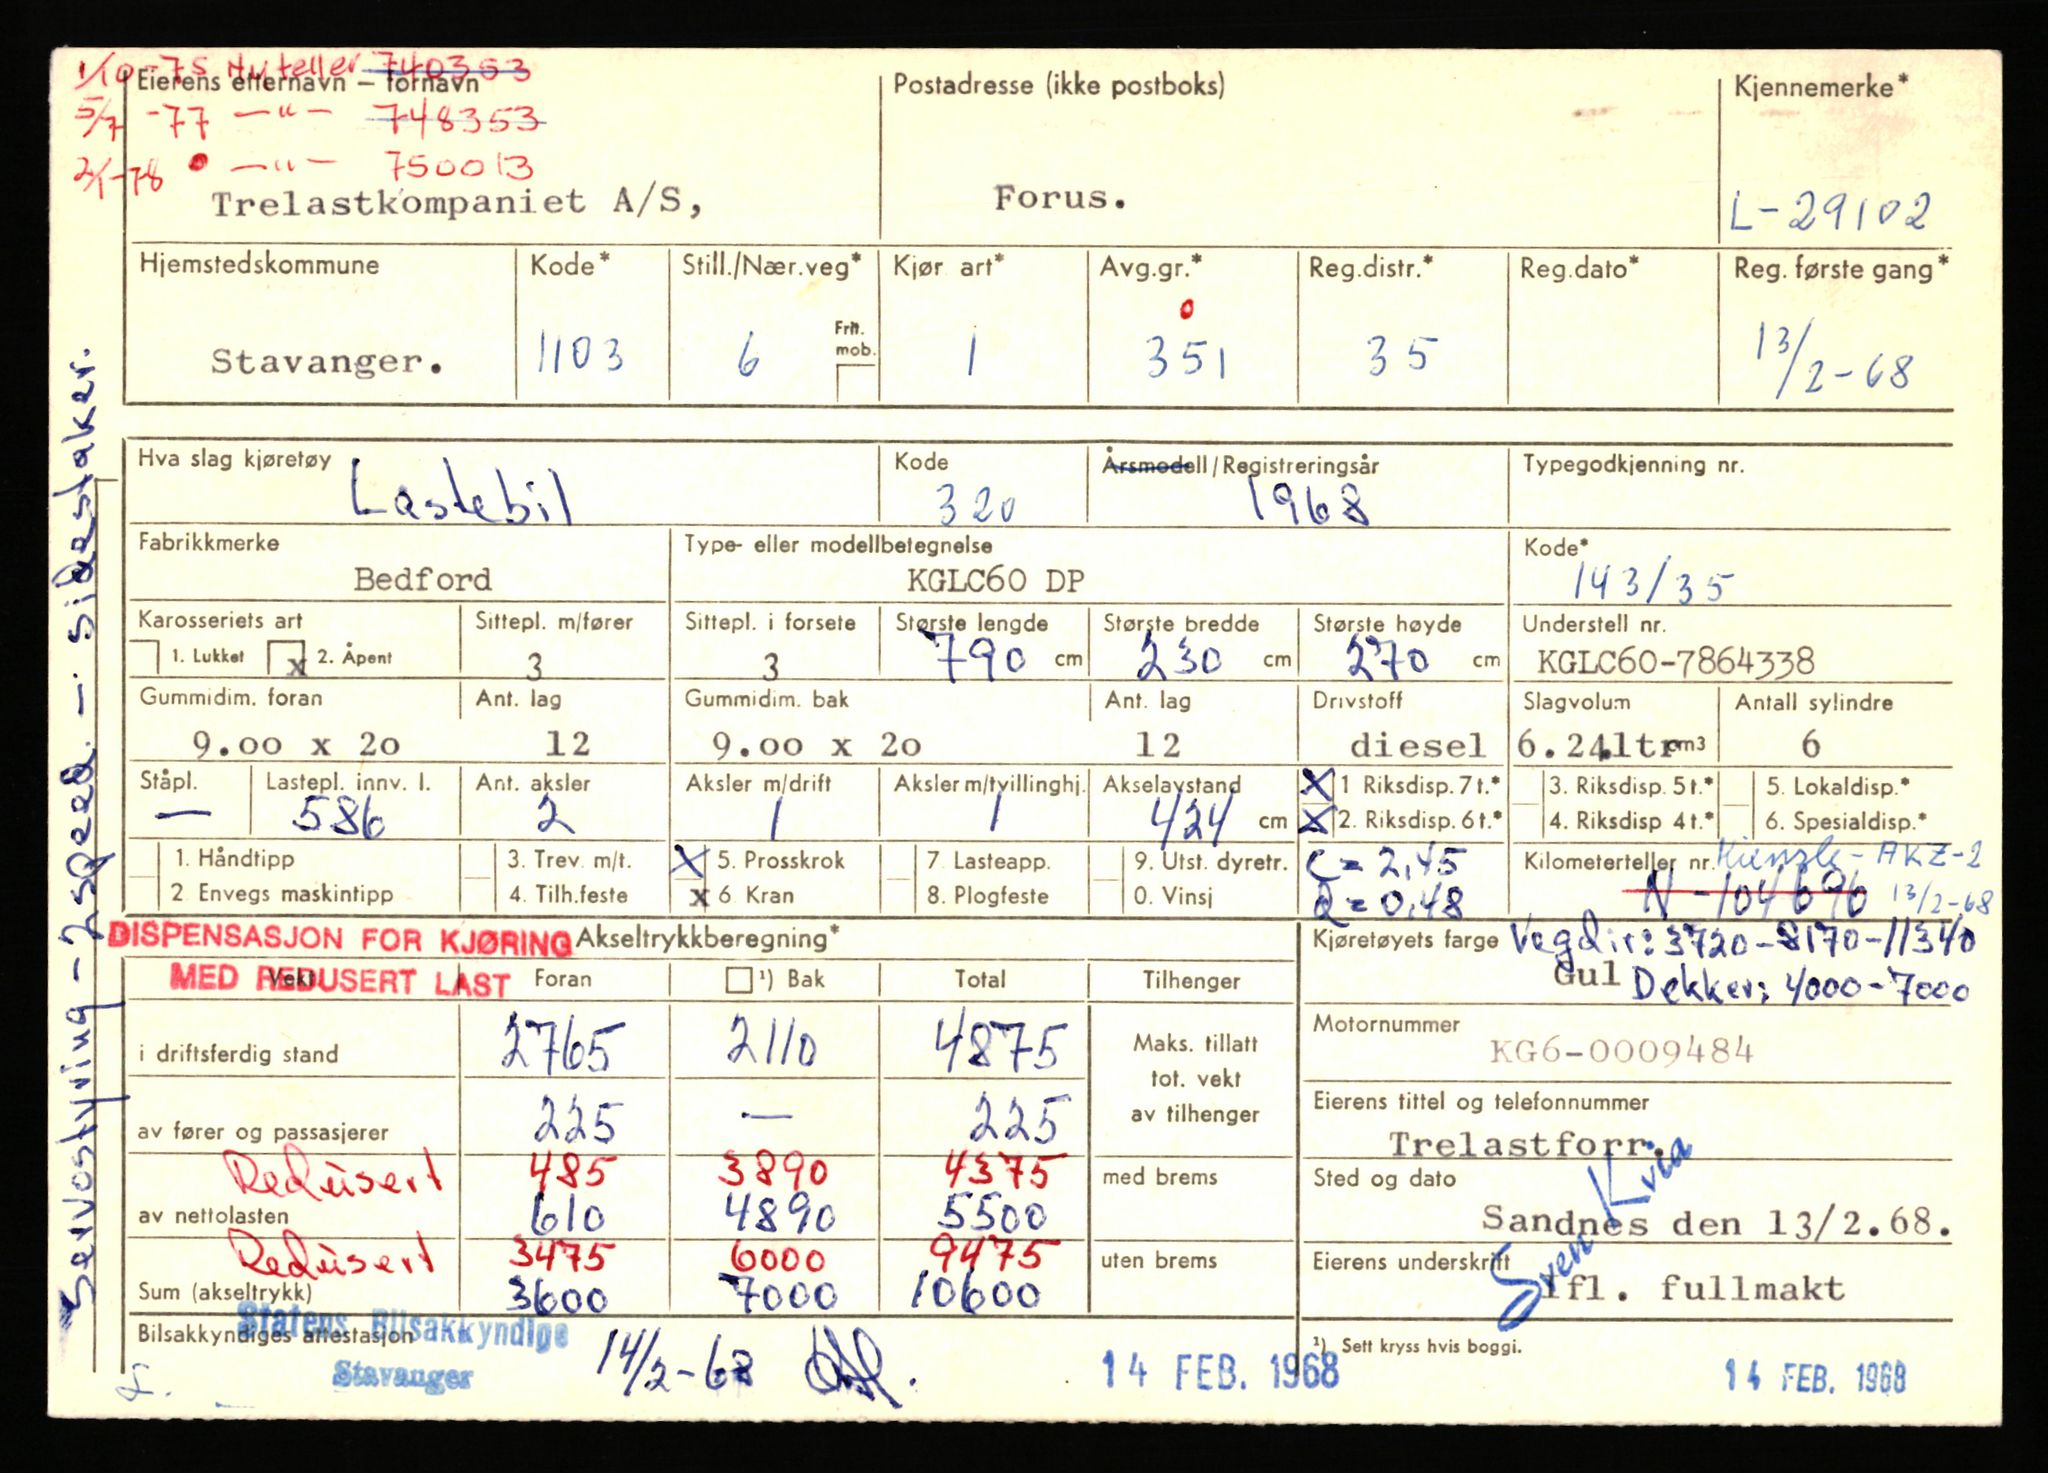 1/10-75 Ny teller 740353
5/7 -77 —"— 748353
2/1-78 —"— 750013
Eierens etternavn – fornavn
Postadresse (ikke postboks)
Kjennemerke*
Trelastkompaniet A/S,
Forus.
L-29102
Hjemstedskommune
Kode*
Still./Nær.veg*
Kjør art*
Avg.gr.*
Reg.distr.*
Reg.dato*
Reg. første gang*
Stavanger.
1103
6
Frit. mob.
1
351
35
13/2-68
Hva slag kjøretøy
Kode
Årsmodell/Registreringsår
Typegodkjenning nr.
Lastebil
320
1968
Fabrikkmerke
Type- eller modellbetegnelse
Kode*
Bedford
KGLC60 DP
143/35
Karosseriets art
Sittepl. m/fører
Sittepl. i forsete
Største lengde
Største bredde
Største høyde
Understell nr.
1. Lukket x 2. Åpent
3
3
790 cm
230 cm
270 cm
KGLC60-7864338
Gummidim. foran
Ant. lag
Gummidim. bak
Ant. lag
Drivstoff
Slagvolum
Antall sylindre
9.00 x 20
12
9.00 x 20
12
diesel
6.24ltr cm3
6
Ståpl.
Lastepl. innv. l.
Ant. aksler
Aksler m/drift
Aksler m/tvillinghj.
Akselavstand
X 1 Riksdisp. 7 t.*
3. Riksdisp. 5 t.*
5. Lokaldisp.*
—
586
2
1
1
424 cm
X 2. Riksdisp. 6 t.*
4. Riksdisp 4 t.*
6. Spesialdisp.*
1. Håndtipp
3. Trev. m/t.
X 5. Prosskrok
7. Lasteapp.
9. Utst. dyretr.
C = 2,45
Kilometerteller nr. Kienzle - AKZ-2
2 Envegs maskintipp
4. Tilh.feste
x 6 Kran
8. Plogfeste
0. Vinsj
Q = 0,48
N-104696 13/2-68
DISPENSASJON FOR KJØRING
MED REDUSERT LAST
Akseltrykkberegning*
Kjøretøyets farge
Vegdir: 3720-8170-11340
Gul
Dekker: 4000-7000
Vekt
Foran
¹) Bak
Total
Tilhenger
i driftsferdig stand
2765
2110
4875
Maks. tillatt
tot. vekt
av tilhenger
Motornummer
KG6-0009484
av fører og passasjerer
225
—
225
Eierens tittel og telefonnummer
Trelastforr.
Redusert
485
3890
4375
med brems
Sted og dato
av nettolasten
610
4890
5500
Sandnes den 13/2.68.
Redusert
3475
6000
9475
uten brems
Eierens underskrift
Sum (akseltrykk)
3600
7000
10600
ifl. fullmakt
Sven Kvia
Bilsakkyndiges attestasjon
Statens Bilsakkyndige
Stavanger
14/2-68
14 FEB. 1968
¹) Sett kryss hvis boggi.
14 FEB. 1968
Servostyring - 2 speed. - sidestaker.